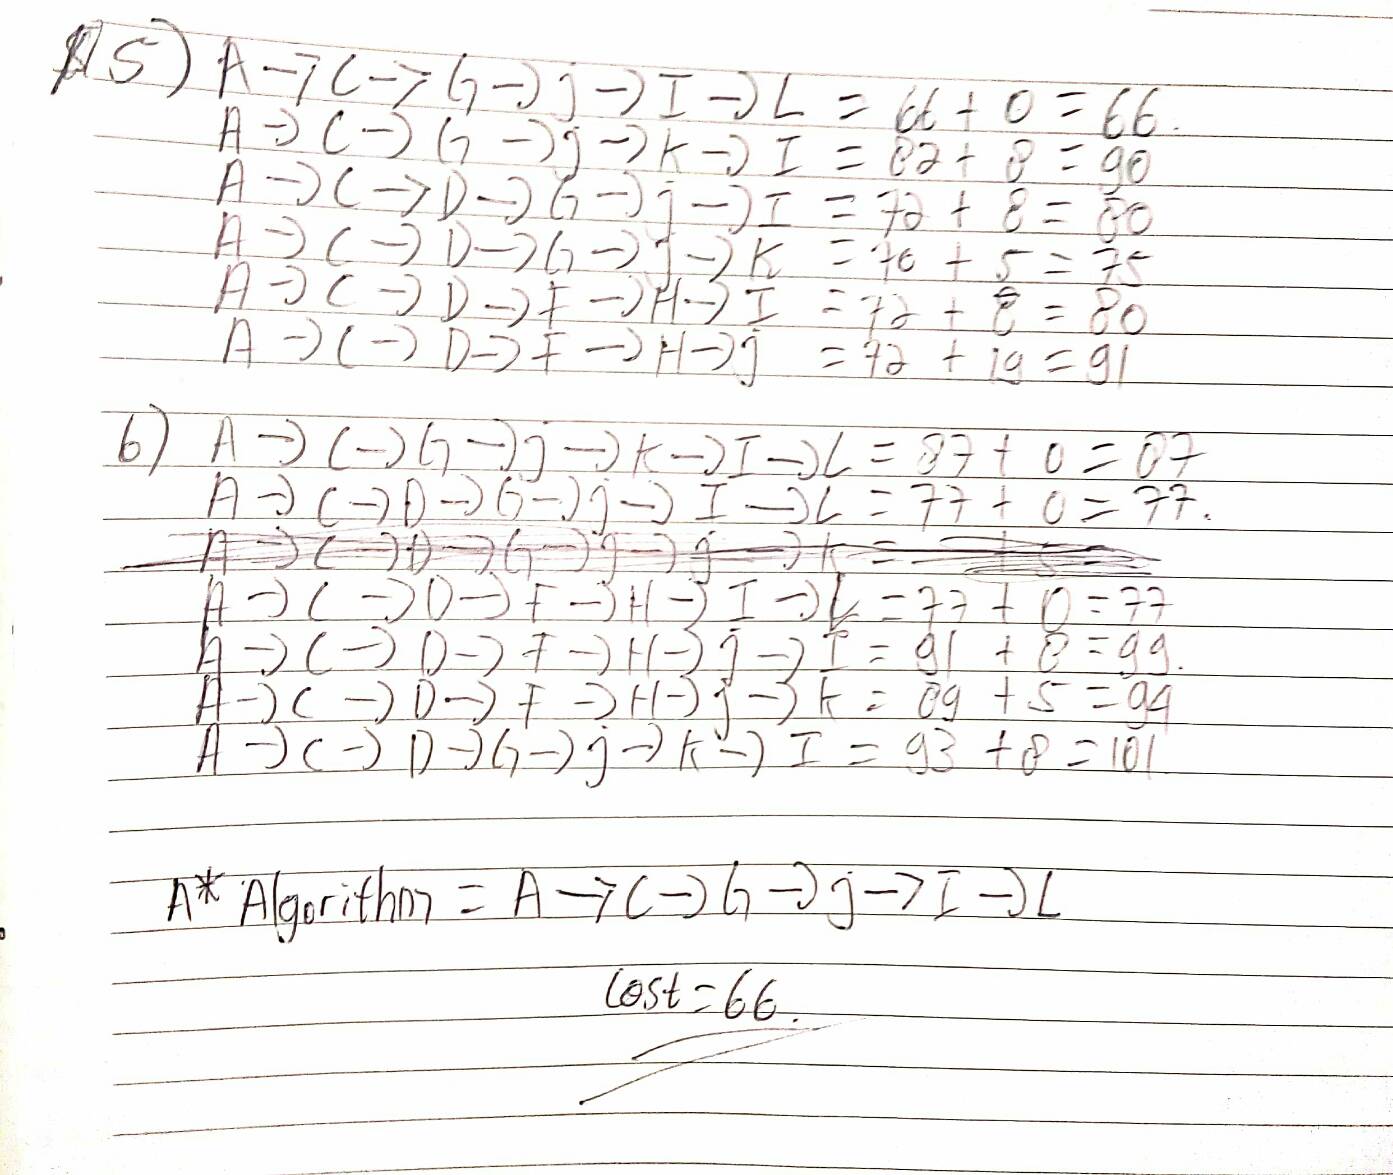 5) A → C → G → j → I → L = 66 + 0 = 66.
A → C → G → j → K → I = 82 + 8 = 90
A → C → D → G → j → I = 72 + 8 = 80
A → C → D → G → j → K = 70 + 5 = 75
A → C → D → F → H → I = 72 + 8 = 80
A → C → D → F → H → j = 72 + 19 = 91
6) A → C → G → j → K → I → L = 87 + 0 = 87
A → C → D → G → j → I → L = 77 + 0 = 77.
A → C → D → G → j → j → K =
A → C → D → F → H → I → L = 77 + 0 = 77
A → C → D → F → H → j → I = 91 + 8 = 99.
A → C → D → F → H → j → K = 89 + 5 = 94
A → C → D → G → j → K → I = 93 + 8 = 101
A* Algorithm = A → C → G → j → I → L
Cost = 66.